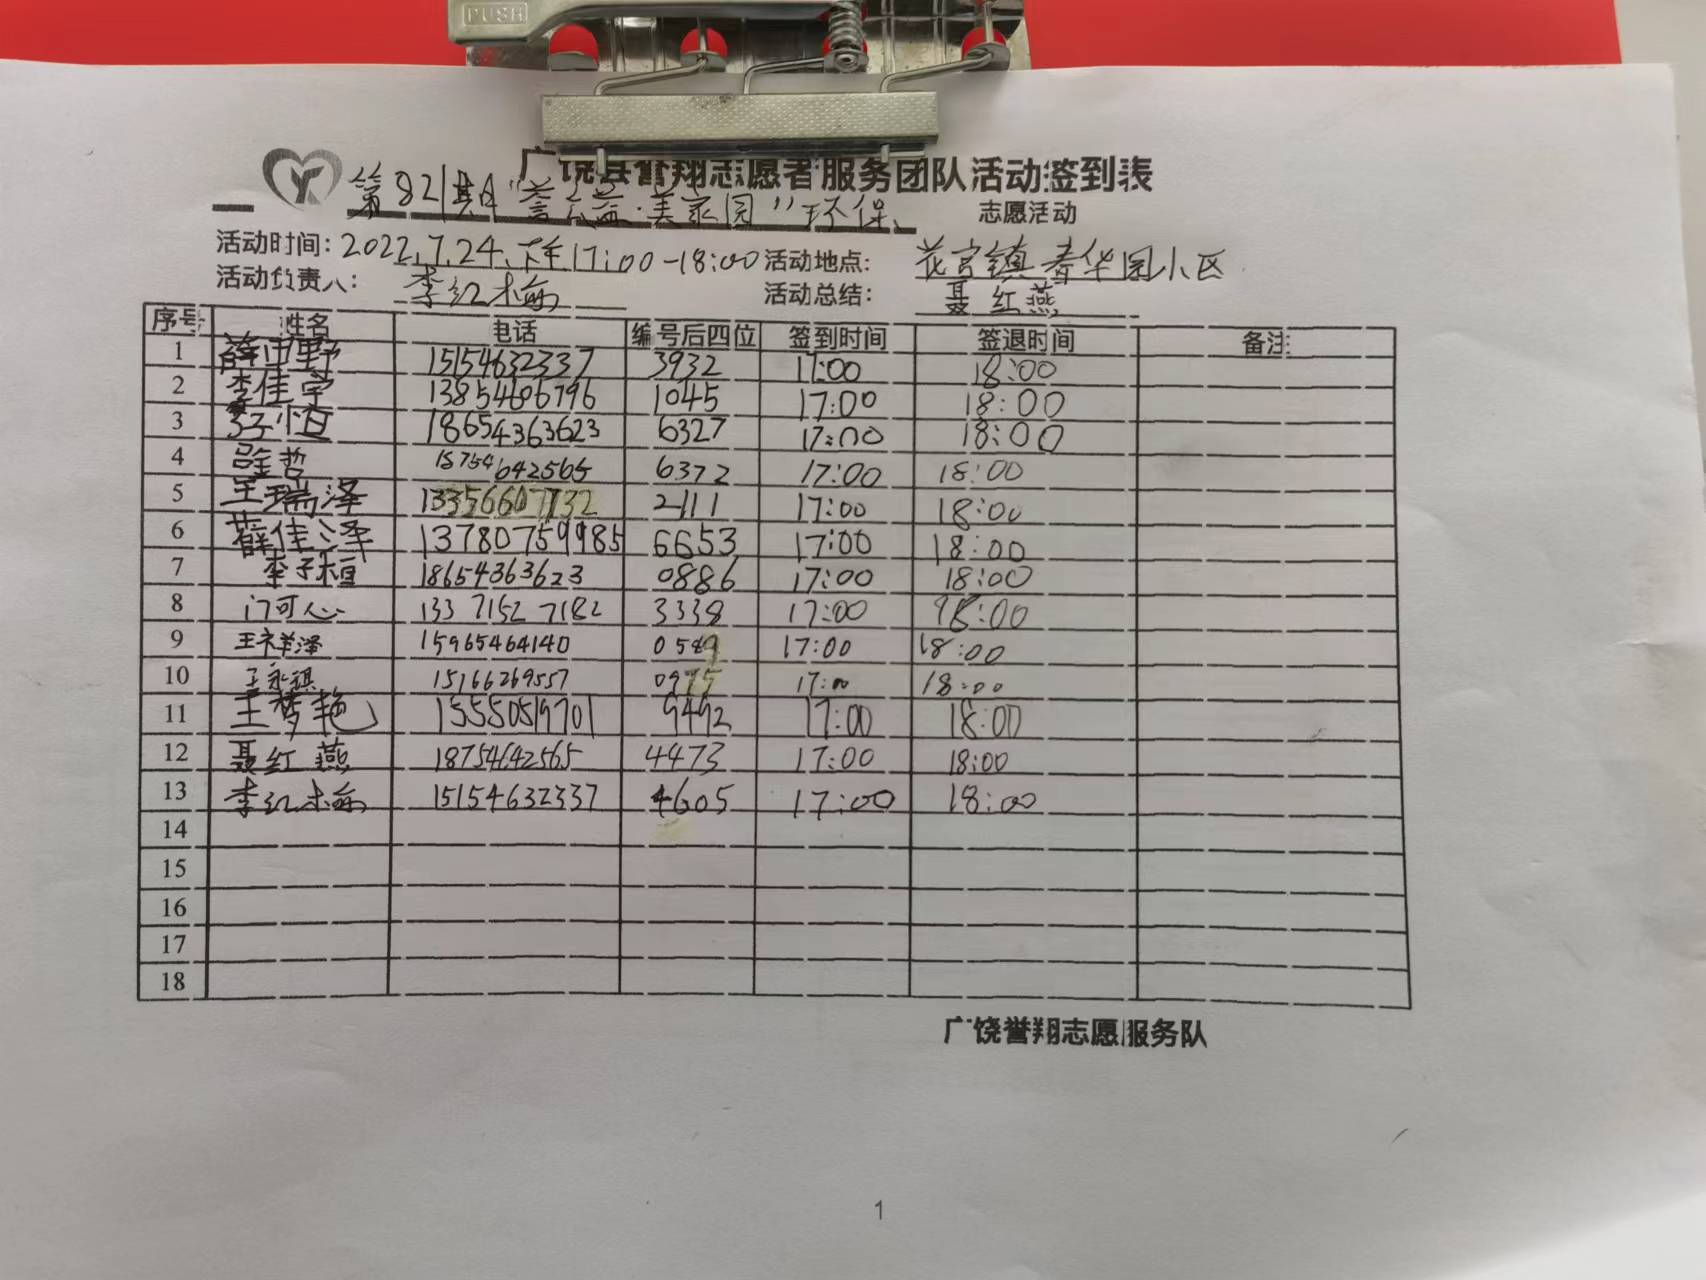 PUSH
广饶县誉翔志愿者服务团队活动签到表
第821期"誉公益·美家园"环保 志愿活动
活动时间: 2022.7.24.下午17:00-18:00 活动地点: 花官镇春华园小区
活动负责人: 李红梅 活动总结: 聂红燕
序号 姓名 电话 编号后四位 签到时间 签退时间 备注
1 薛田野 15154632337 3932 17:00 18:00
2 李佳宇 13854606796 1045 17:00 18:00
3 18654363623 6327 17:00 18:00
4 哲 18754642565 6372 17:00 18:00
5 王瑞泽 13356607132 2111 17:00 18:00
6 薛佳泽 13780759985 6653 17:00 18:00
7 李子桓 18654363623 0886 17:00 18:00
8 门可心 133 7152 7182 3338 17:00 18:00
9 王祥泽 15965464140 0589 17:00 18:00
10 王永祺 15166269557 0975 17:00 18:00
11 王梦艳 15550519701 9492 17:00 18:00
12 聂红燕 18754642565 4473 17:00 18:00
13 李红梅 15154632337 4605 17:00 18:00
14
15
16
17
18
广饶誉翔志愿服务队
1